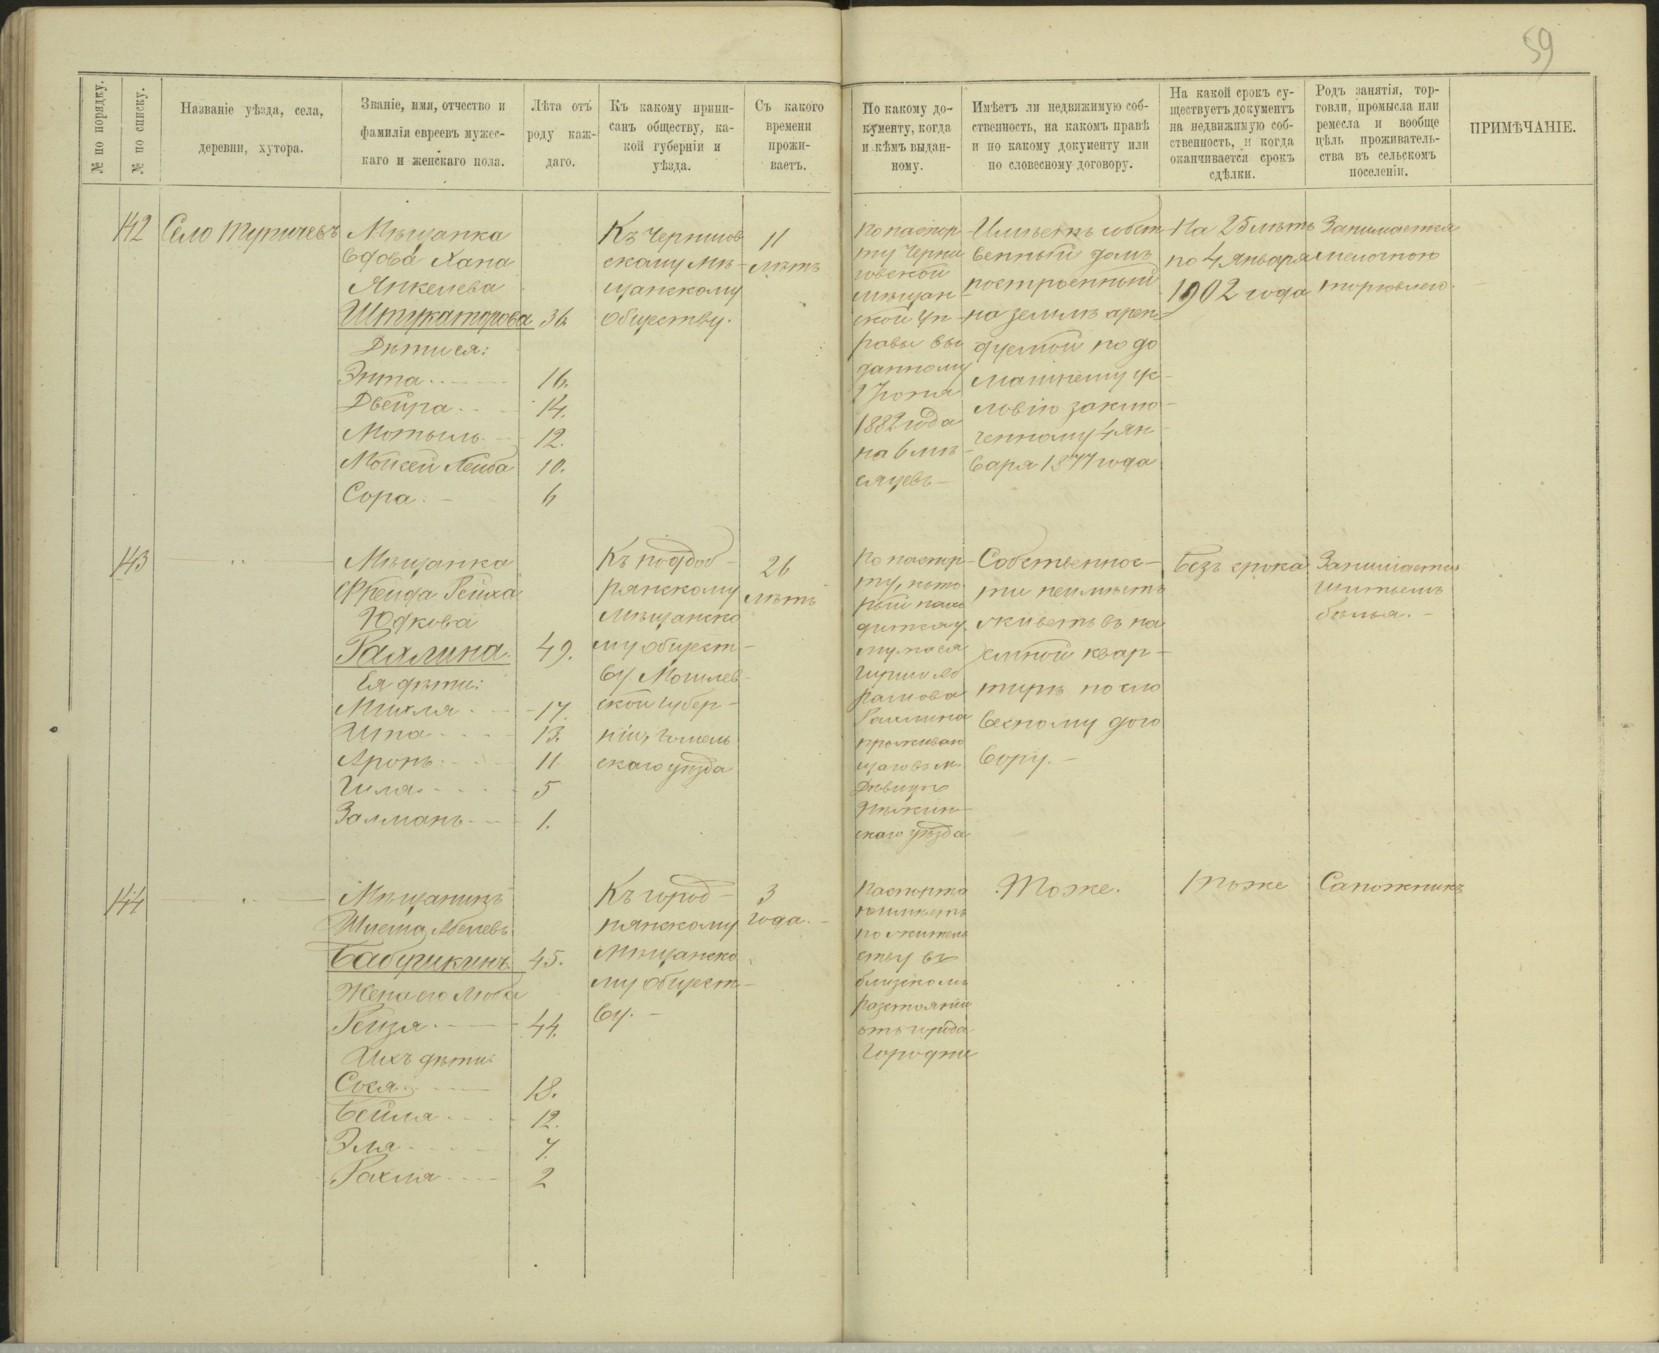 59
№ по порядку.
№ по списку.
Названіе уѣзда, села,
деревни, хутора.
Званіе, имя, отчество и
фамилія евреевъ мужес-
каго и женскаго пола.
Лѣта отъ
роду каж-
даго.
Къ какому припи-
санъ обществу, ка-
кой губерніи и
уѣзда.
Съ какого
времени
прожи-
ваетъ.
По какому до-
кументу, когда
и кѣмъ выдан-
ному.
Имѣетъ ли недвижимую соб-
ственность, на какомъ правѣ
и по какому документу или
по словесному договору.
На какой срокъ су-
ществуетъ документъ
на недвижимую соб-
ственность, и когда
оканчивается срокъ
сдѣлки.
Родъ занятія, тор-
говли, промысла или
ремесла и вообще
цѣль проживатель-
ства въ сельскомъ
поселеніи.
ПРИМѢЧАНІЕ.
142
Село Тупичевъ
Мѣщанка
вдова Хана
Янкелева
Штукаторова 36.
Дѣти ея:
Энта 16.
Двейра 14.
Мотыль 12.
Мойсей Лейба 10.
Сора 6
Къ Чернигов
скому мѣ-
щанскому
обществу.
11
лѣтъ
По паспор-
ту Черни
говской
мѣщан-
ской Уп-
равы вы
данному
1882 года
на 6 мѣ-
сяцевъ
Имѣетъ собст
венный домъ
построенный
на землѣ арен-
дуемой по до
машнему ус-
ловію заклю-
ченному 4 Ян-
варя 1877 года
На 25 лѣтъ
по 4 Января
1902 года
Занимается
мелочною
торговлею.
143
Мѣщанка
Фрейда Рейха
Юдкова
Раллина 49.
Ея дѣти:
Михля 17.
Ипа 13.
Аронъ 11
Гила 5
Залманъ 1.
Къ подоб-
рянскому
мѣщанско
му общест-
ву Могилев-
ской губер-
ніи, Гомель
скаго уѣзда
26
лѣтъ
По паспор-
ту, кото
рый нахо
дится у
мужа ея
проживаю
щаго въ м.
Дѣвицѣ
Нѣжин-
скаго уѣзда
Собственнос-
ти неимѣетъ
живетъ въ на
емной квар-
тирѣ по сло
весному дого
вору.
Безъ срока
Занимается
шитьемъ
бѣлья.
144
Мѣщанинъ
Абелевъ
Бабушкинъ 45.
Жена его Люба
Рейзя 44.
Ихъ дѣти:
Сося 18.
Бейля 12.
Эля 7.
Рахля 2
Къ город-
нянскому
мѣщанско
му общест-
ву.
3
года.
Паспорта
неимѣетъ
по житель
ству въ
близкомъ
разстояніи
отъ города
Городни
Тоже.
Тоже
Сапожникъ